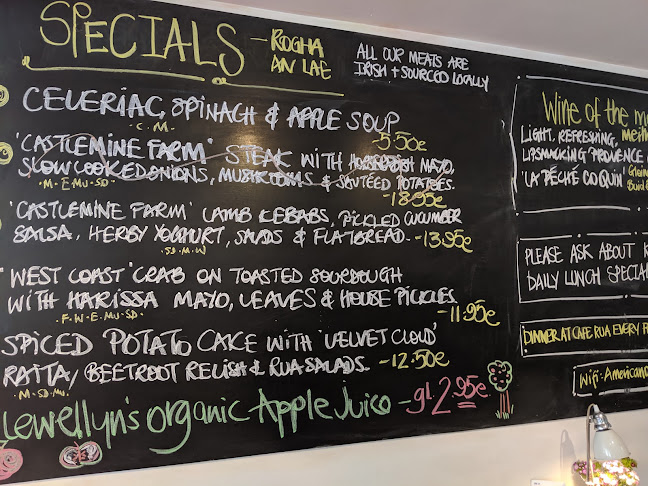 SPECIALS
- ROGHA
AN LAE
ALL OUR MEATS ARE
IRISH + SOURCED LOCALLY
CELERIAC, SPINACH & APPLE SOUP
- C. M -
- 5.50e
'CASTLEMINE FARM' STEAK WITH HORSERADISH MAYO,
SLOW COOKED ONIONS, MUSHROOMS & SAUTÉED POTATOES.
- M - E - MU - SD -
- 18.95e
'CASTLEMINE FARM' LAMB KEBABS, PICKLED CUCUMBER
SALSA, HERBY YOGHURT, SALADS & FLATBREAD. - 13.95e
- SD - M - W
'WEST COAST' CRAB ON TOASTED SOURDOUGH
WITH HARISSA MAYO, LEAVES & HOUSE PICKLES.
- F - W - E - MU - SD -
- 11.95e
SPICED POTATO CAKE WITH 'VELVET CLOUD'
RAITA, BEETROOT RELISH & RUA SALADS. - 12.50e
- M - SD - MU.
Llewellyn's organic Apple Juice - gl 2.95e
Wine of the mo
LIGHT, REFRESHING,
LIPSMACKING PROVENCE
'LA PÊCHÉ COQUIN'
PLEASE ASK ABOUT K
DAILY LUNCH SPECIAL
DINNER AT CAFE RUA EVERY F
Wifi - Americano